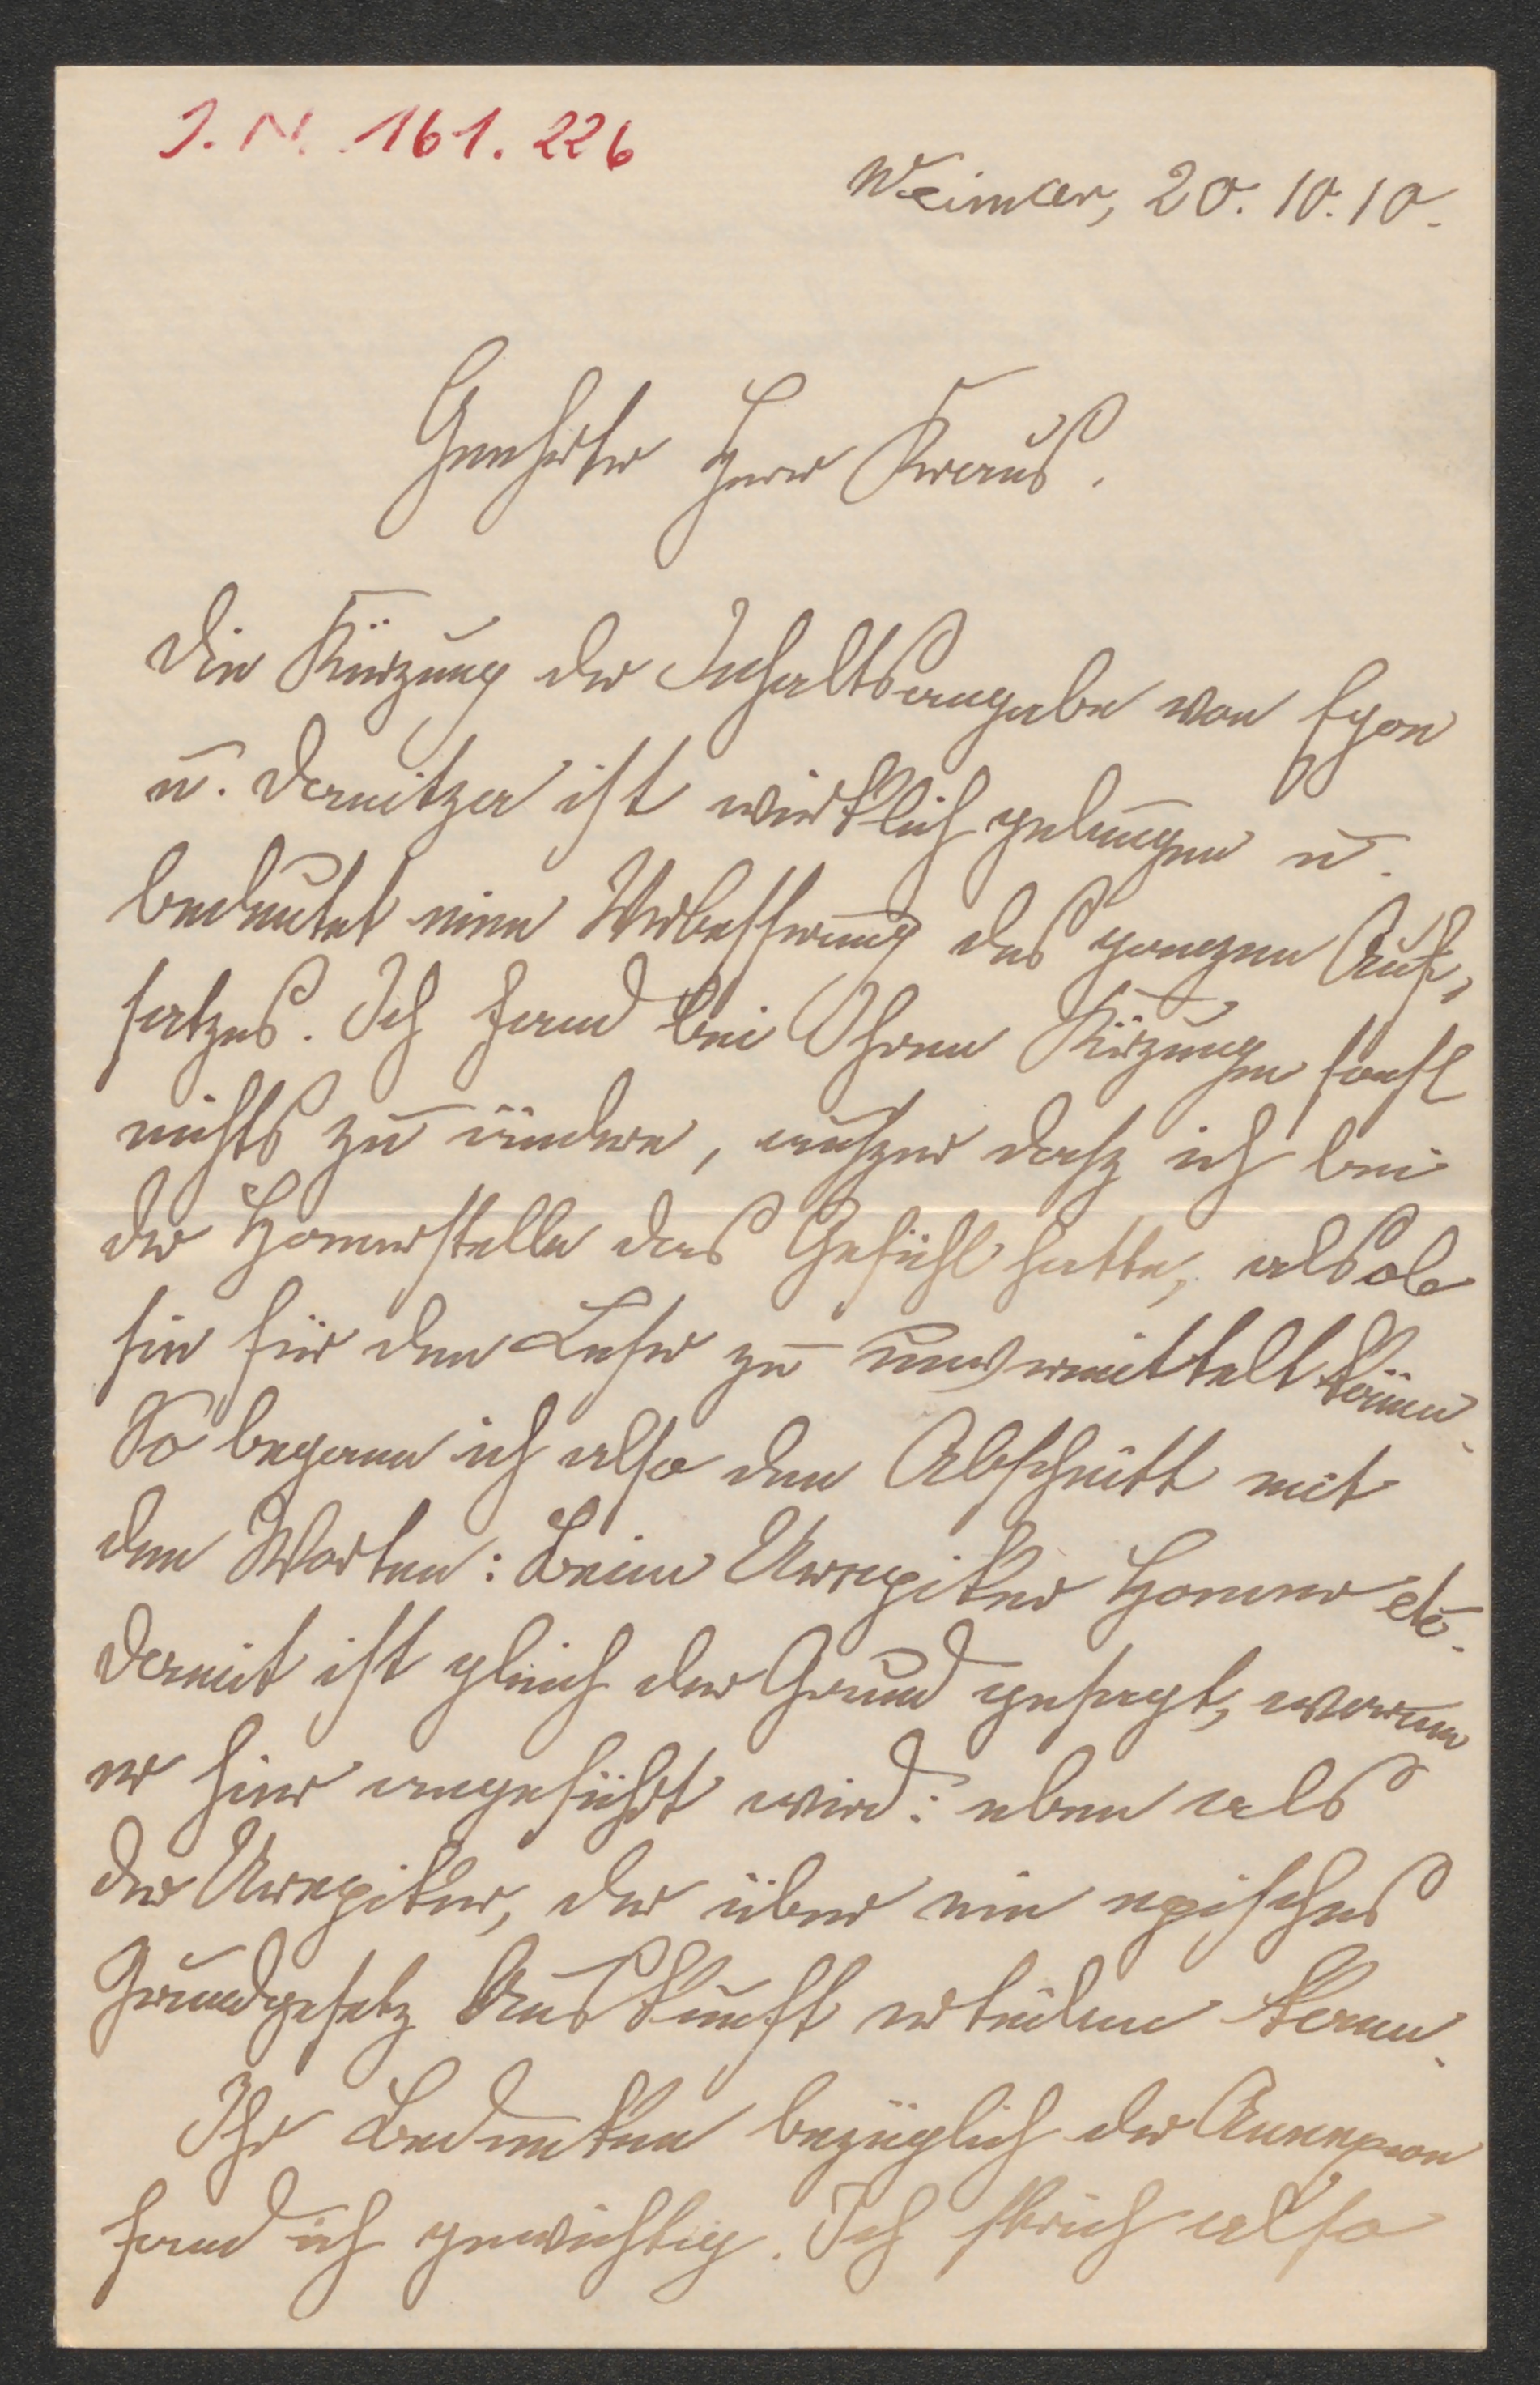 J. N. 161.226
Weimar, 20. 10. 10.
Geehrter Herr Kraus.
Die Kürzung der Inhaltsangabe von Egon
u. Danitza ist wirklich gelungen u.
bedeutet eine Verbesserung des ganzen Auf-
satzes. Ich fand bei Ihren Kürzungen sonst
nichts zu ändern, auszer dasz ich bei
der Homerstelle das Gefühl hatte, als ob
sie für den Leser zu unvermittelt käme.
So begann ich also den Abschnitt mit
den Worten: Beim Urepiker Homer etc.
Damit ist gleich der Grund gesagt, warum
er hier angeführt wird: eben als
der Urepiker, der über ein episches
Grundgesetz Auskunft erteilen kann.
Ihr Bedenken bezüglich der
fand ich gewichtig. Ich strich also